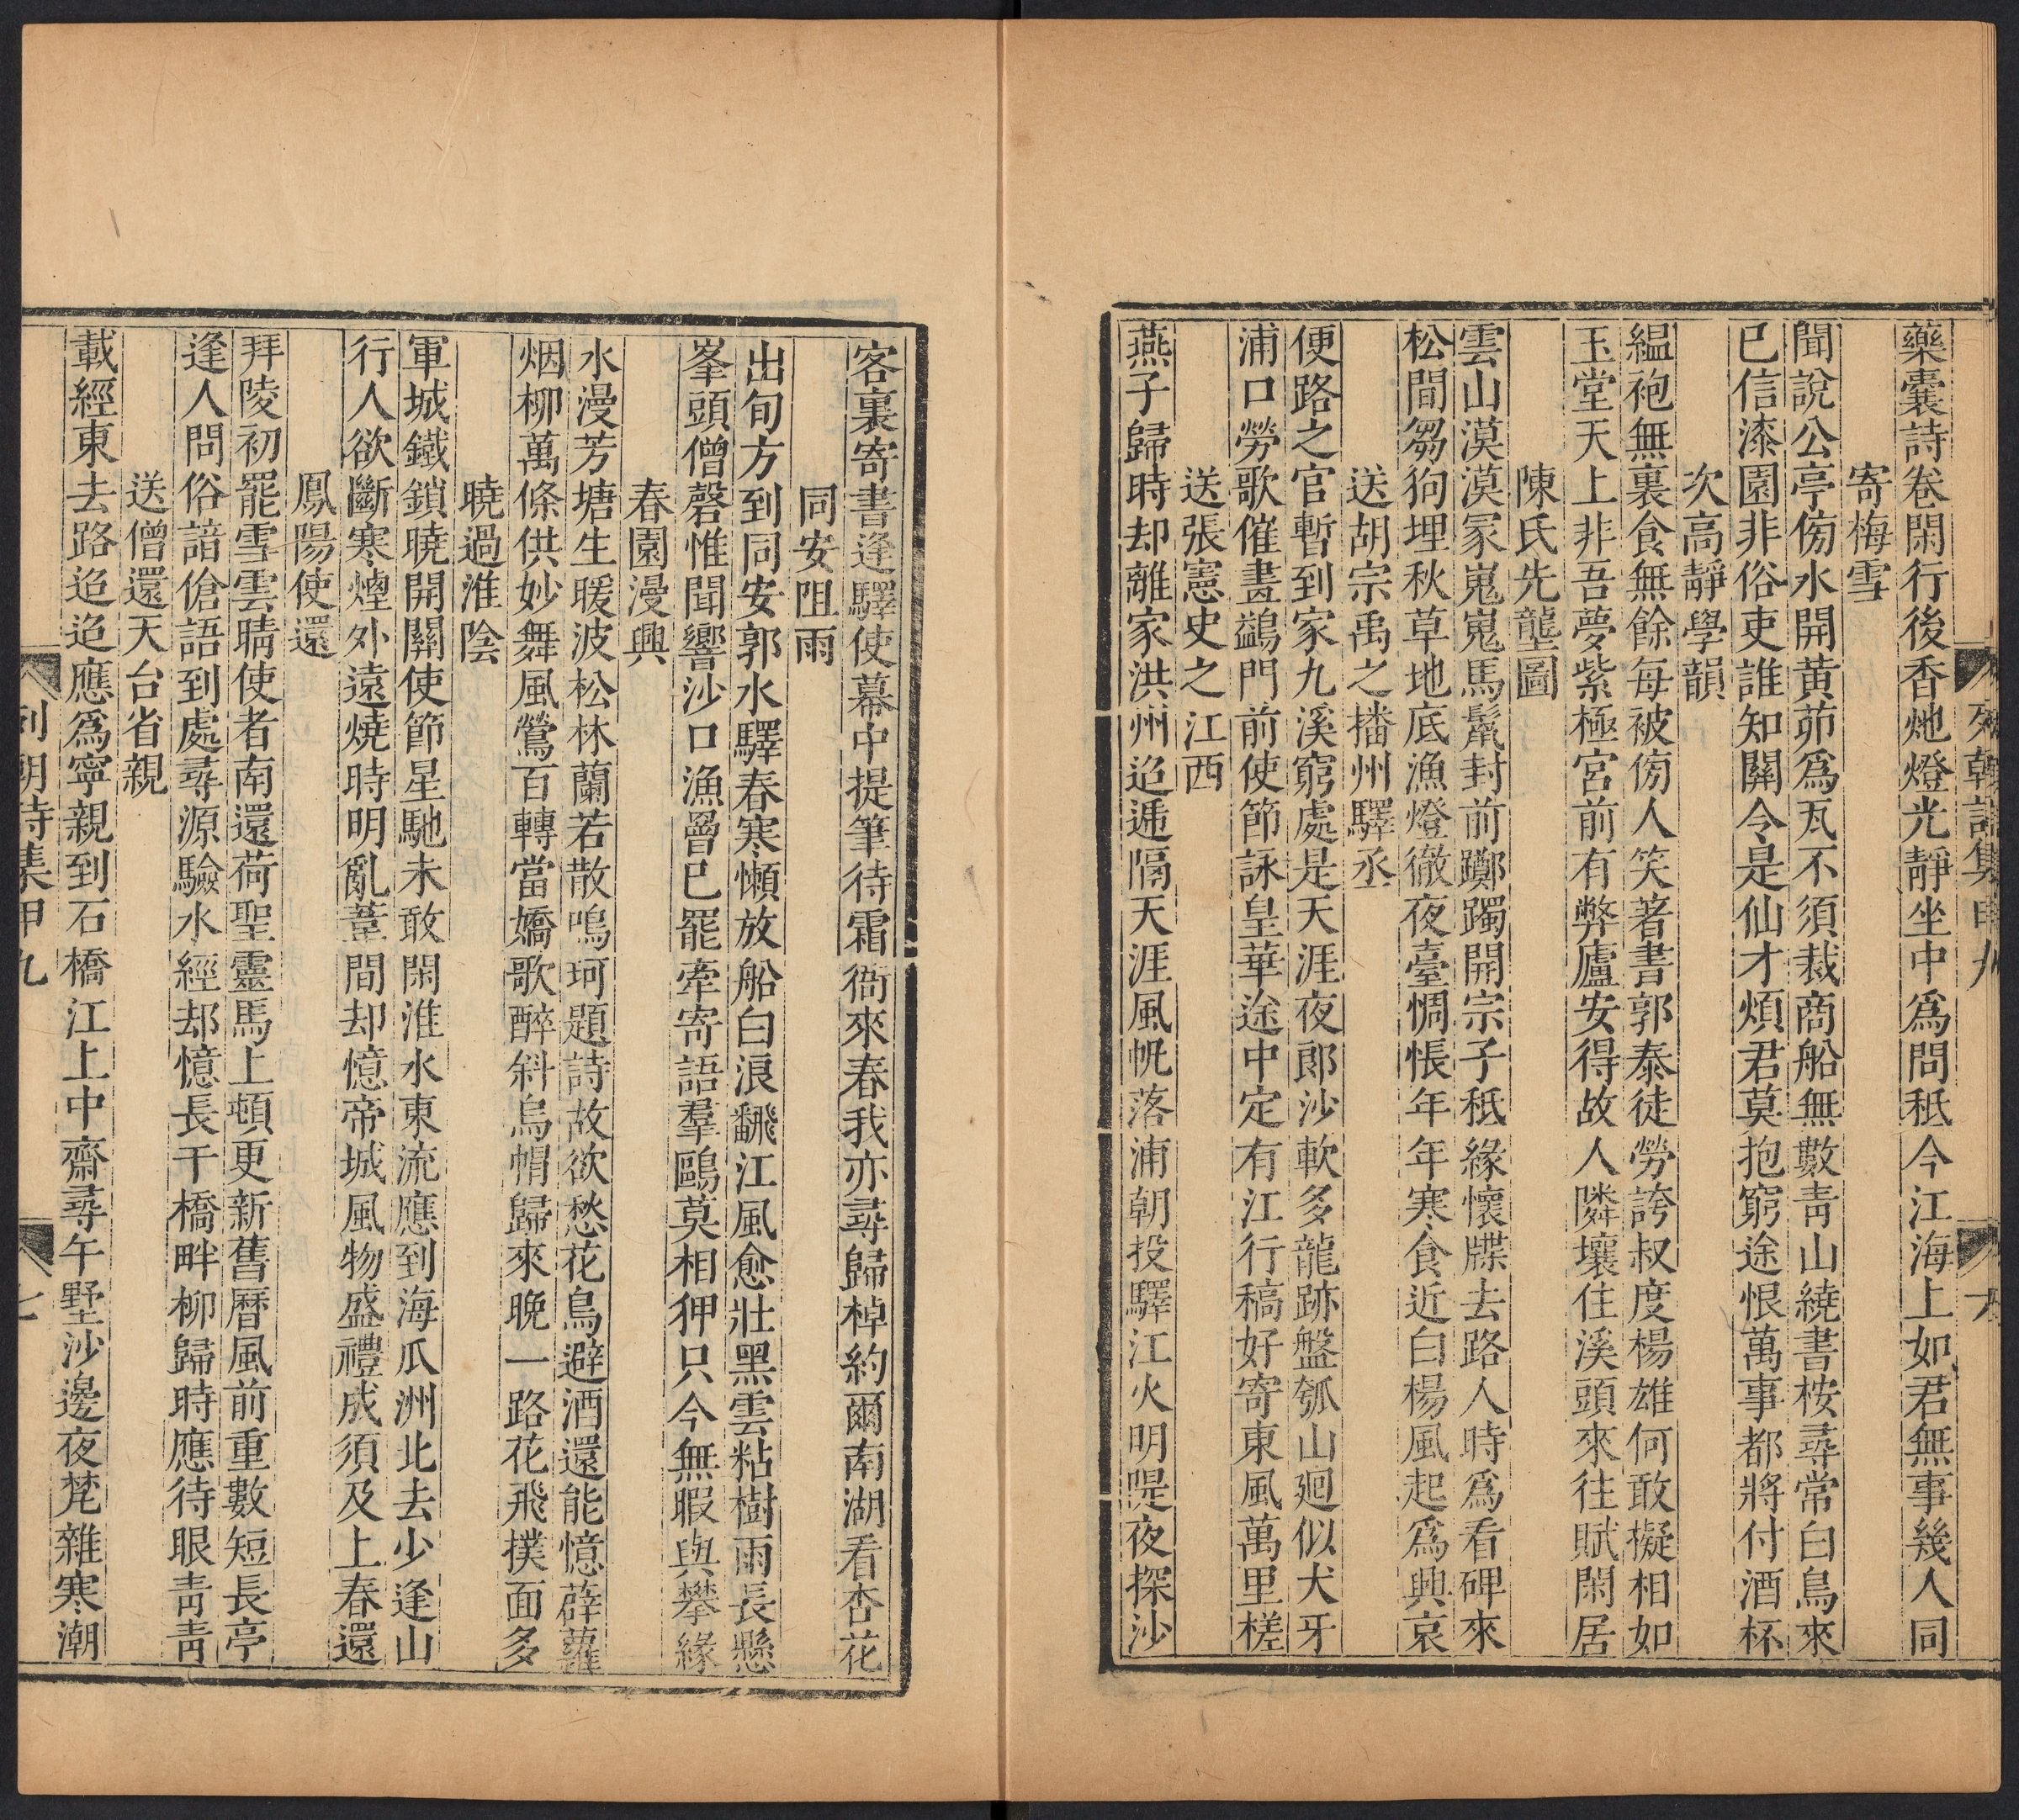 藥囊詩卷閑行後香灺燈光靜坐中爲問秪今江海上如君無事幾人同
寄梅雪
聞說公亭傍水開黄茆爲瓦不須裁商船無數青山繞書桉尋常白鳥來
已信漆園非俗吏誰知關令是仙才煩君莫抱窮途恨萬事都將付酒杯
次高靜學韻
緼袍無裏食無餘每被傍人笑著書郭泰徒勞誇叔度楊雄何敢擬相如
玉堂天上非吾夢紫極宮前有弊廬安得故人隣壤住溪頭來往賦閑居
陳氏先壟圖
雲山漠漠冢嵬嵬馬鬛封前躑躅開宗子秪緣懷牒去路人時爲看碑來
松間芻狗埋秋草地底漁燈徹夜臺惆悵年年寒食近白楊風起爲興哀
送胡宗禹之播州驛丞
便路之官暫到家九溪窮處是天涯夜郎沙軟多龍跡盤瓠山廻似犬牙
浦口勞歌催畫鷁門前使節詠皇華途中定有江行稿好寄東風萬里槎
送張憲史之江西
燕子歸時却離家洪州迢遞隔天涯風帆落浦朝投驛江火明隄夜探沙
列朝詩集甲九
客裏寄書逢驛使幕中提筆待霜衙來春我亦尋歸棹約爾南湖看杏花
同安阻雨
出旬方到同安郭水驛春寒懶放船白浪翻江風愈壯黑雲粘樹雨長懸
峯頭僧磬惟聞響沙口漁罾已罷牽寄語羣鷗莫相狎只今無暇與攀緣
春園漫興
水漫芳塘生暖波松林蘭若散鳴珂題詩故欲愁花鳥避酒還能憶薜蘿
烟柳萬條供妙舞風鶯百轉當嬌歌醉斜烏帽歸來晚一路花飛撲面多
曉過淮陰
軍城鐵鎖曉開關使節星馳未敢閑淮水東流應到海瓜洲北去少逢山
行人欲斷寒煙外遠燒時明亂葦間却憶帝城風物盛禮成須及上春還
鳳陽使還
拜陵初罷雪雲睛使者南還荷聖靈馬上頓更新舊曆風前重數短長亭
逢人問俗諳傖語到處尋源驗水經却憶長干橋畔柳歸時應待眼青青
送僧還天台省親
載經東去路迢迢應爲寧親到石橋江上中齋尋午墅沙邊夜梵雜寒潮
列朝詩集甲九
七